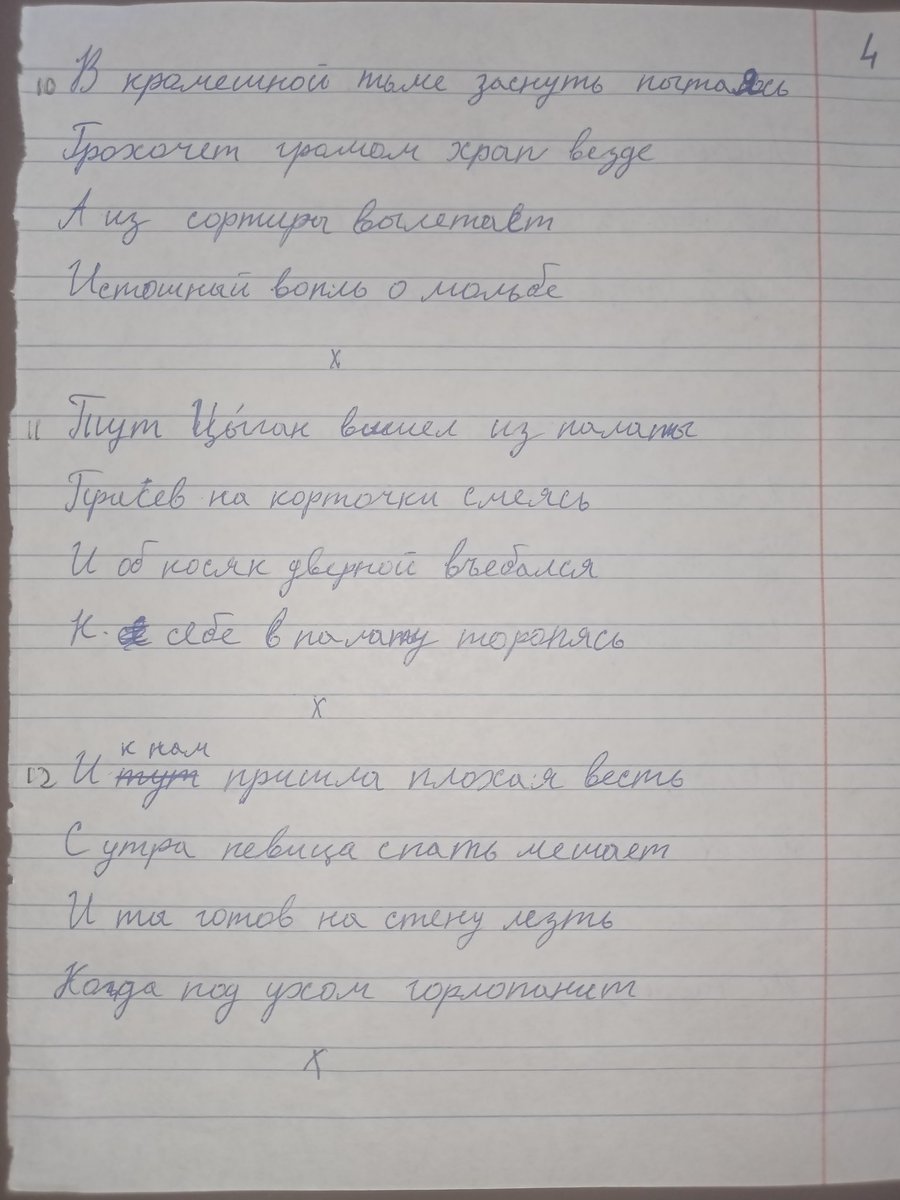 4
10 В крамешной тьме заснуть пытаясь
Грохочет громом храп везде
А из сортиры вылетает
Истошный вопль о мольбе
х
11 Тут Цы́ган вышел из палаты
Присев на корточки смеясь
И об косяк дверной въебался
К себе в палату торопясь
х
к нам
12 И тут пришла плохая весть
С утра певица спать мешает
И ты готов на стену лезть
Когда под ухом горлопанит
х